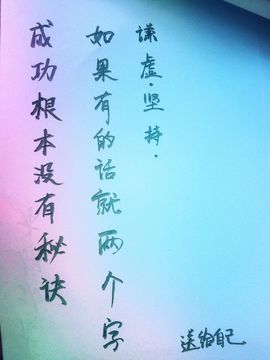 成功根本没有秘诀
如果有的话就两个字
谦虚·坚持·
送给自己